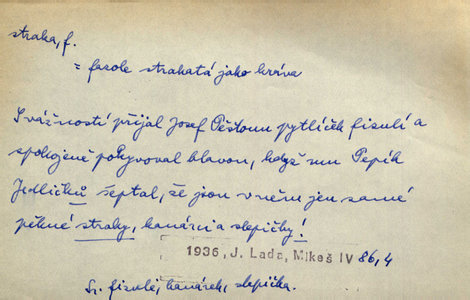 straka, f.
= fazole strakatá jako kráva
S vážností přijal Josef Pěštoun pytlíček fizulí a
spokojeně pokyvoval hlavou, když mu Pepík
Jedličků šeptal, že jsou v něm jen samé
pěkné straky, kanárci a slepičky!
1936, J. Lada, Mikeš IV 86,4
Sr. fizule, kanárek, slepička.